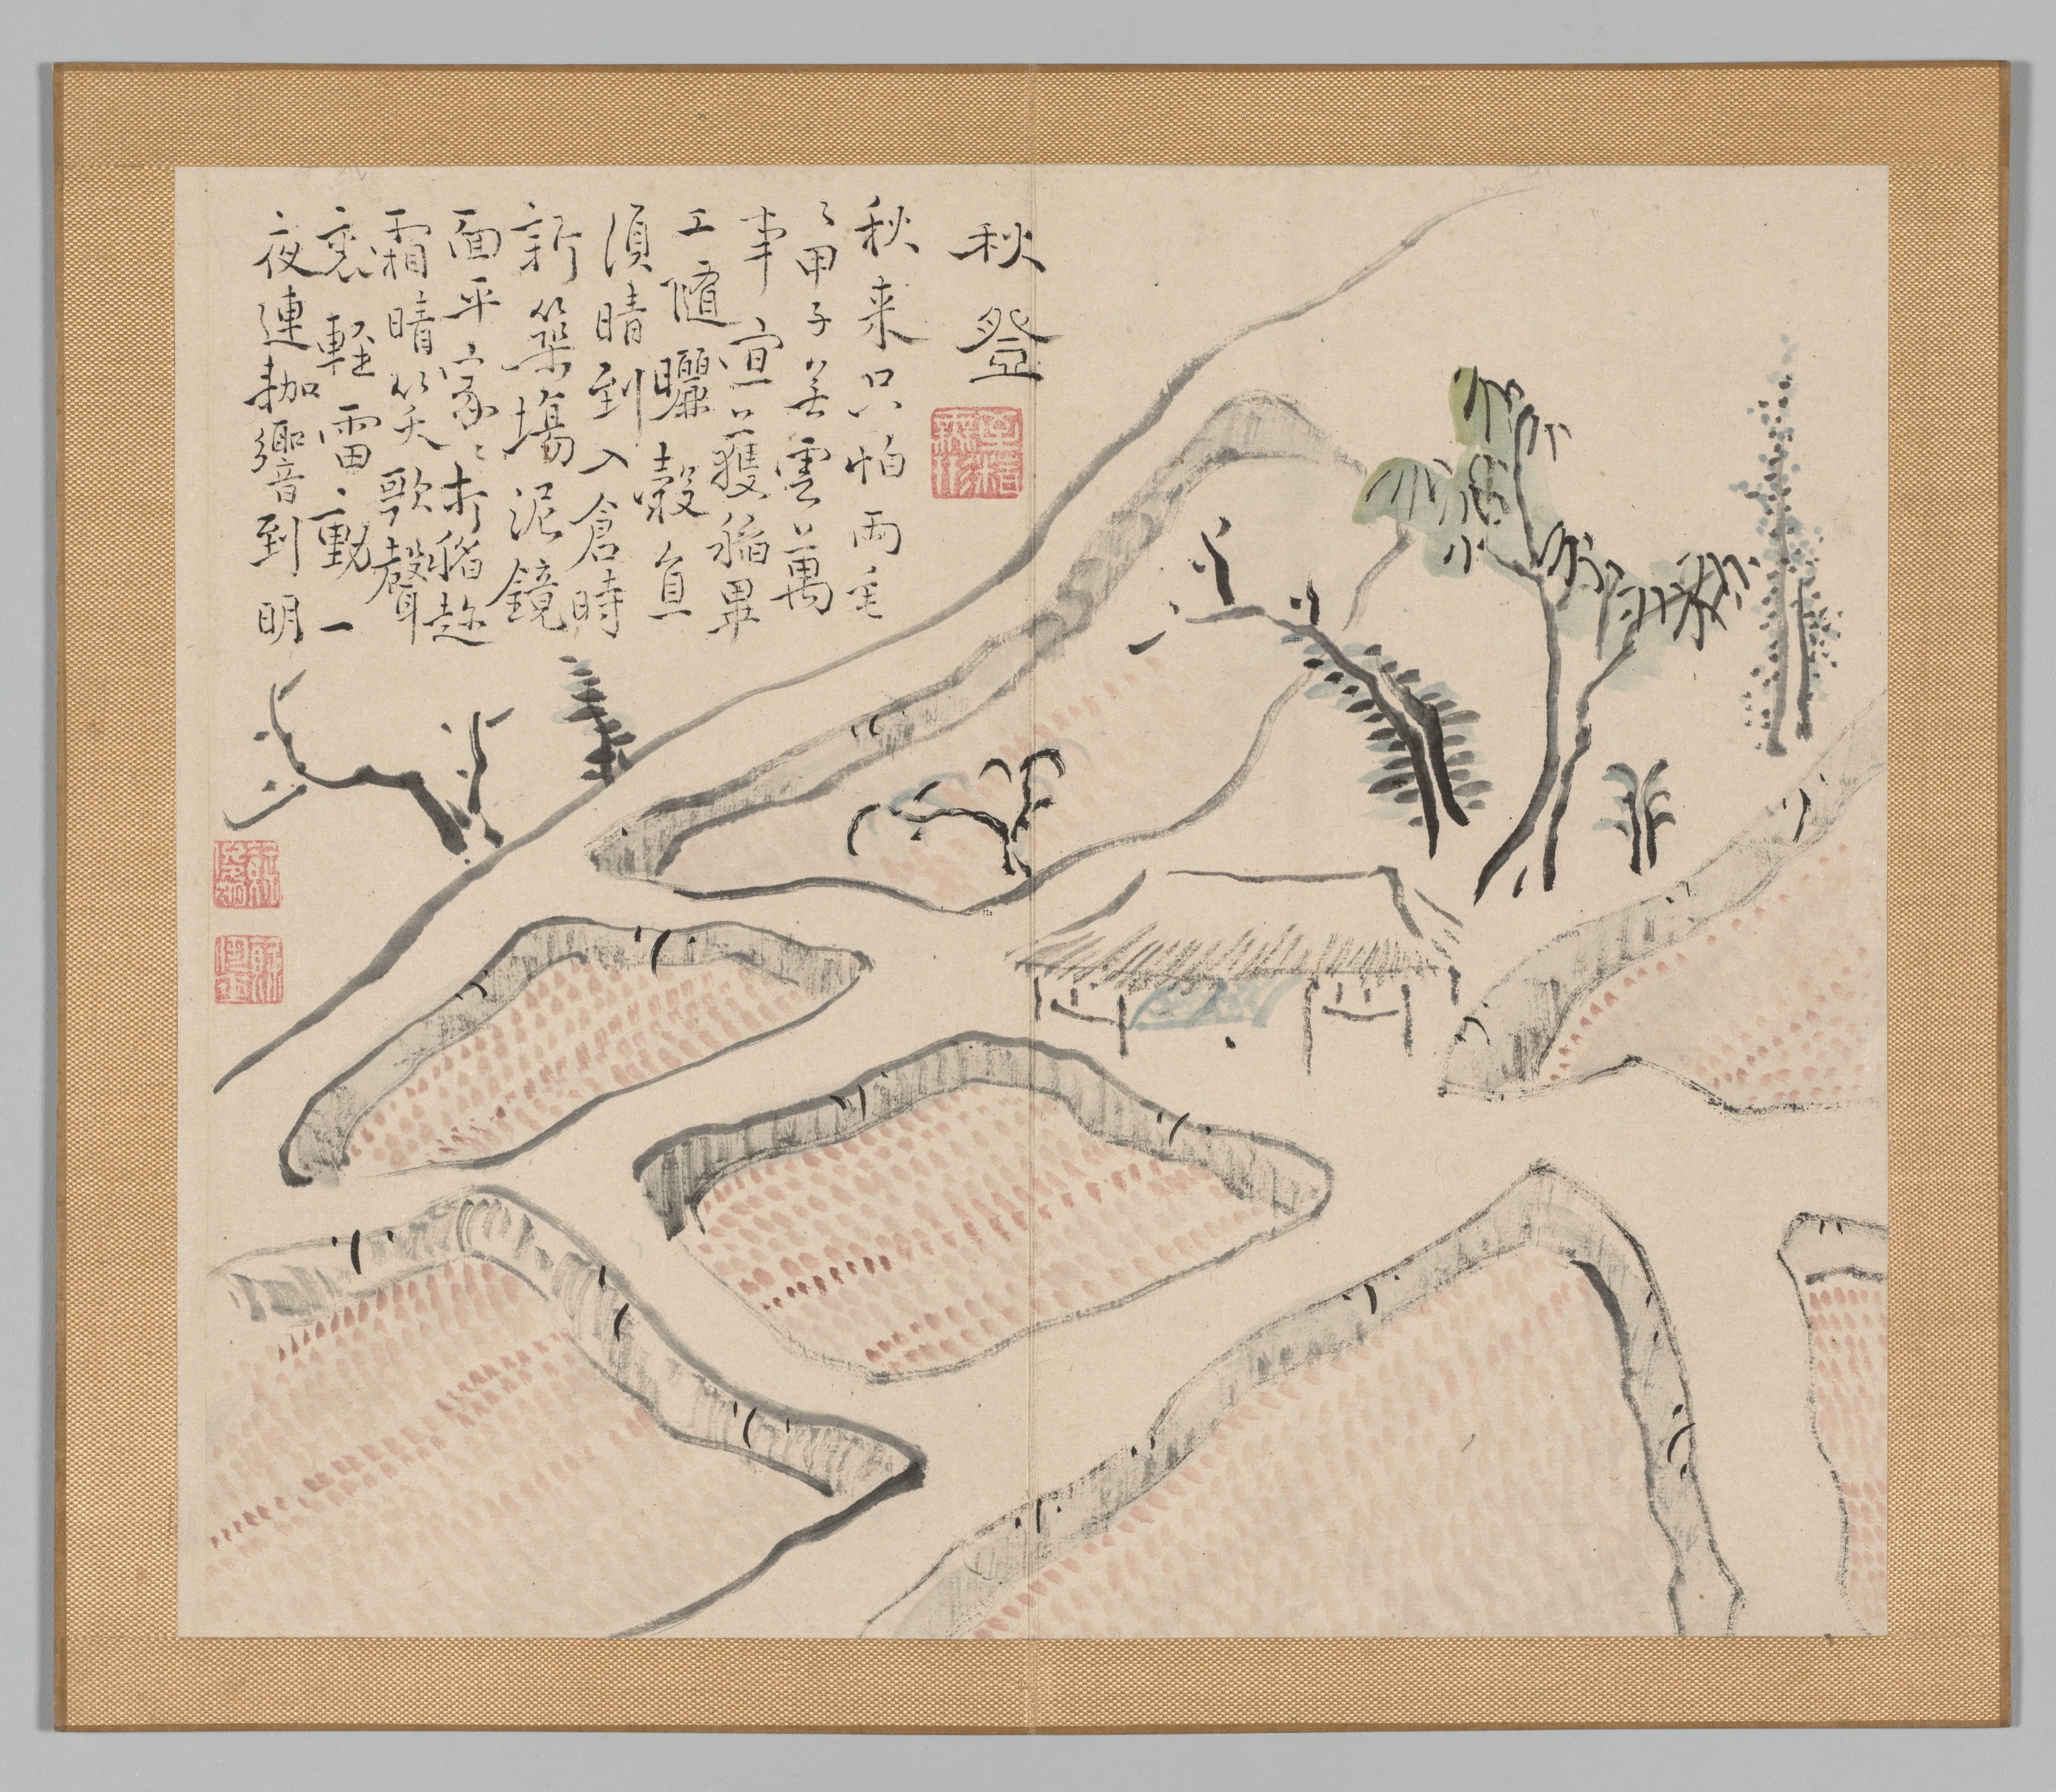 秋登
秋来只怕雨垂
〻甲子無雲萬
事宜獲稻畢
工隨曬穀直
須晴到入倉時
新築場泥鏡
面平家〻打稻趁
霜晴笑歌聲
裏軽雷動一
夜連耞響到明